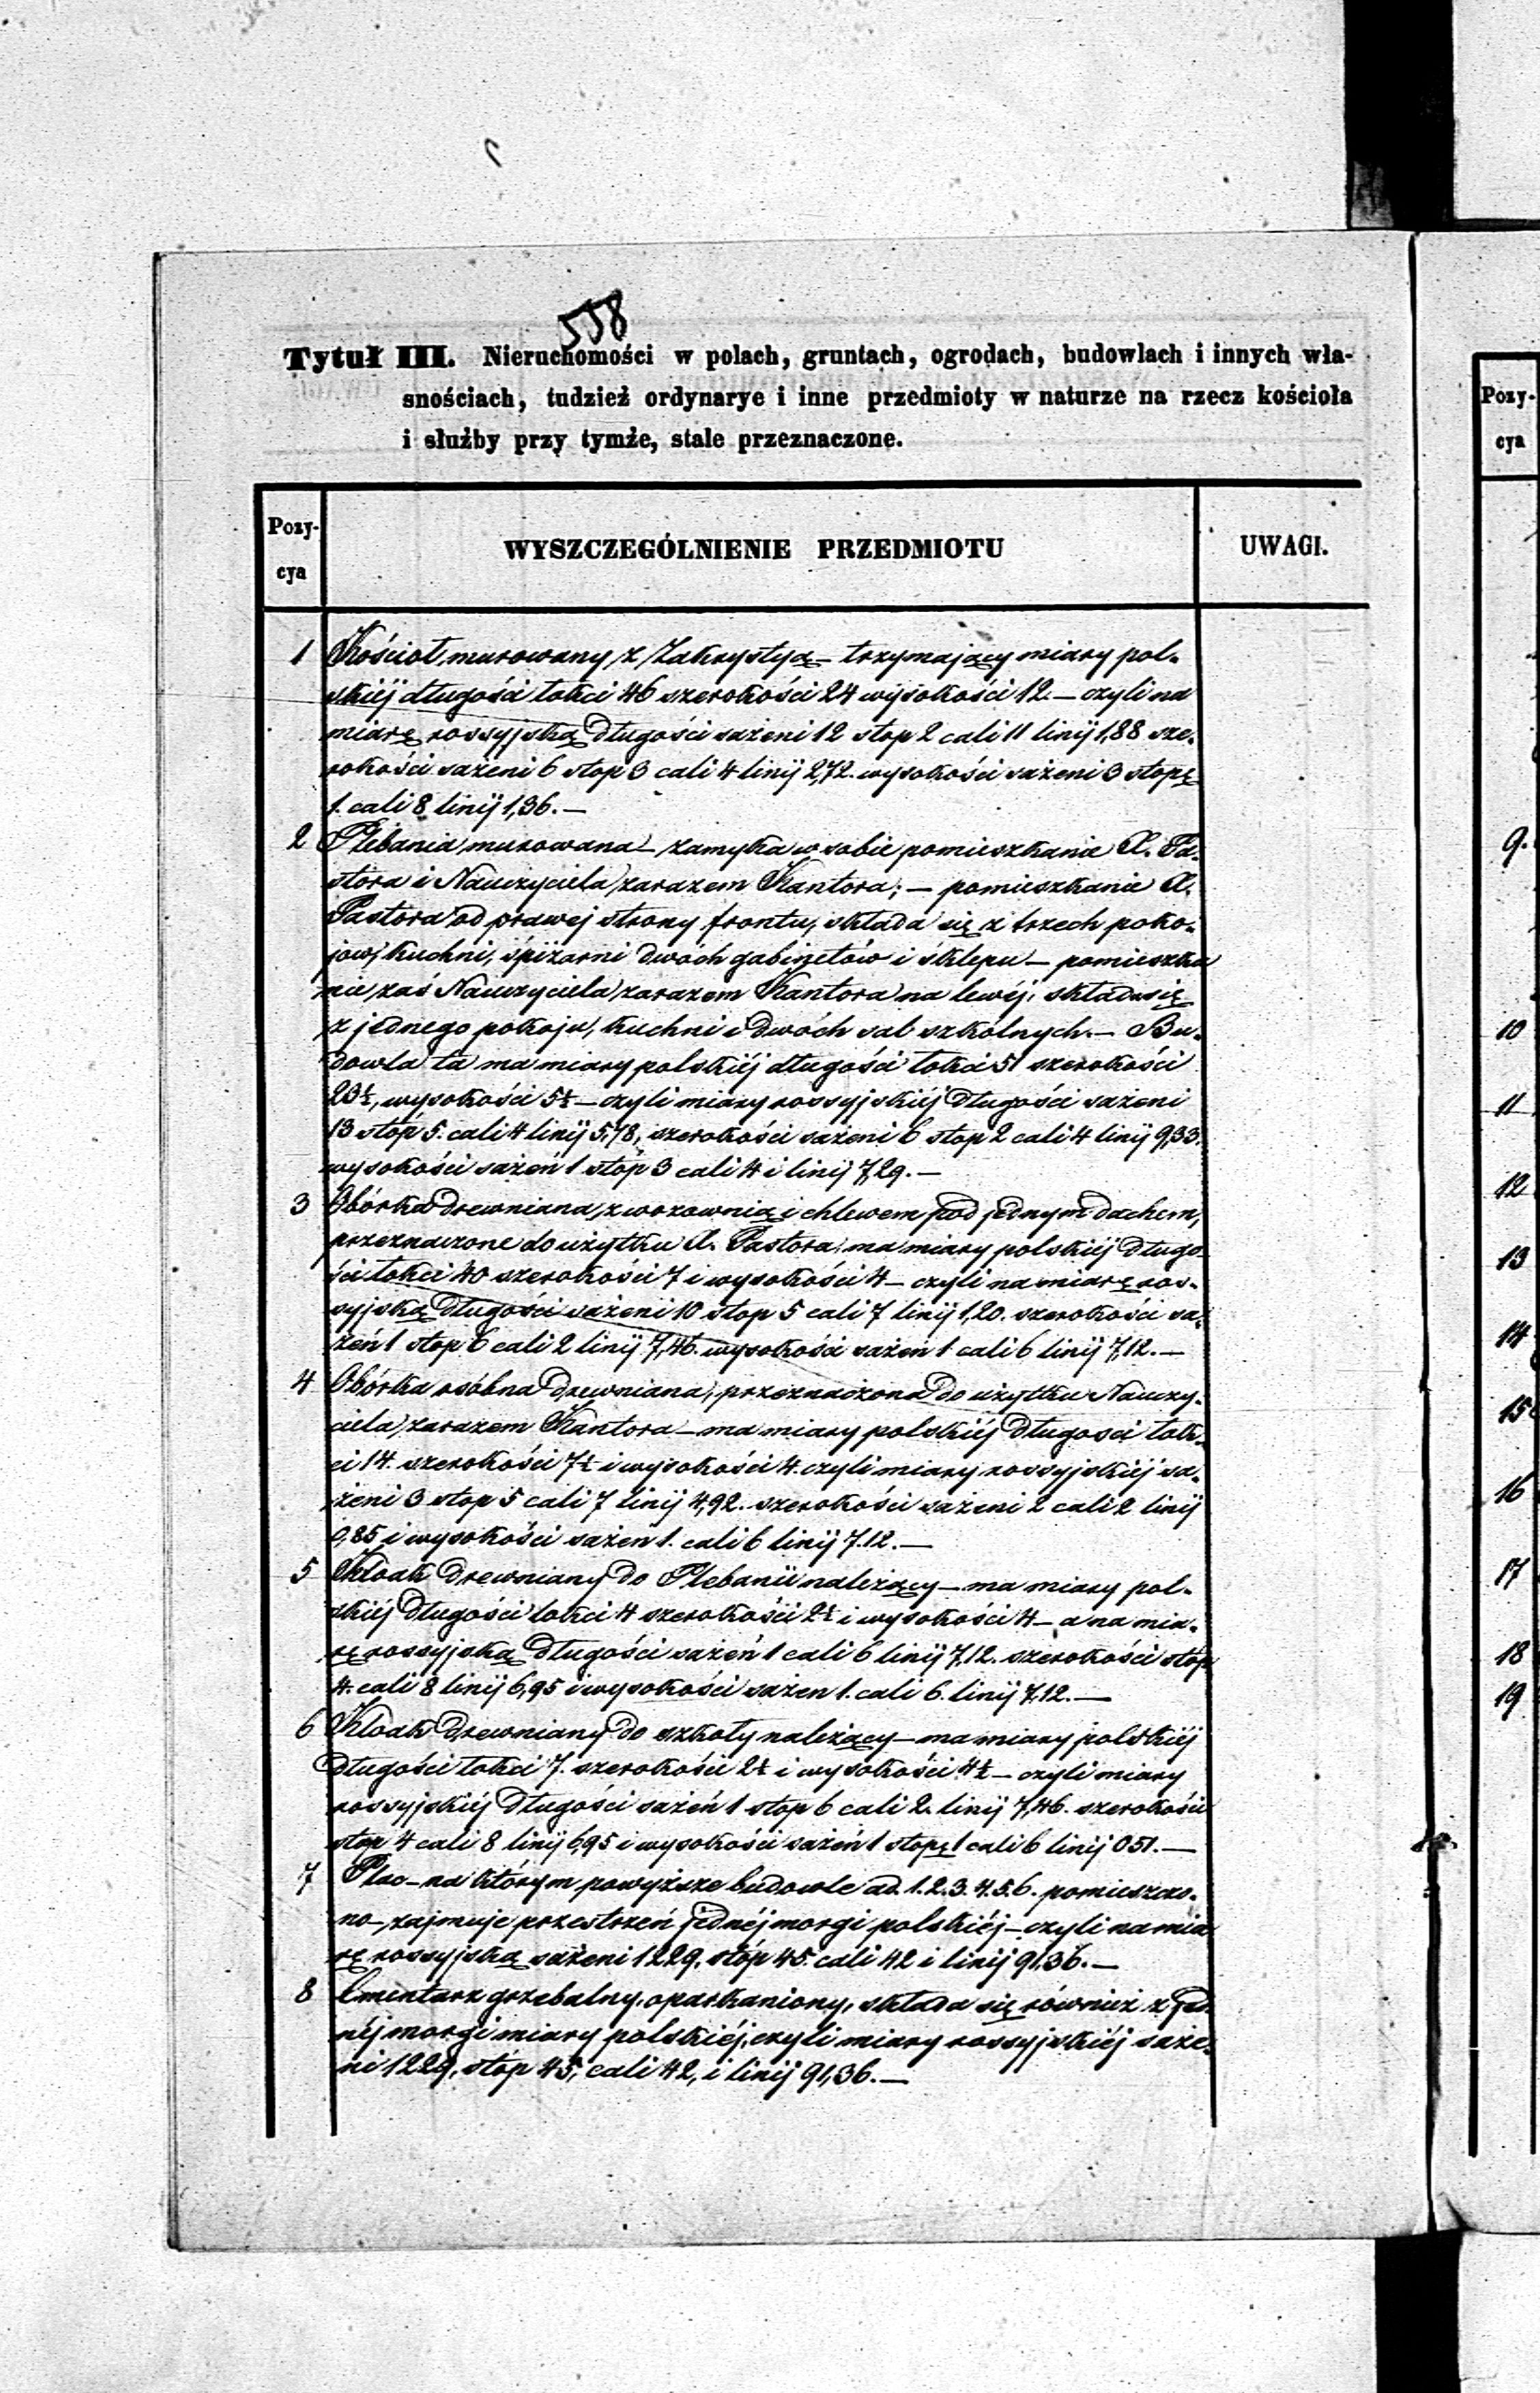 558
Tytuł III. Nieruchomości w polach, gruntach, ogrodach, budowlach i innych wła-
snościach, tudzież ordynarye i inne przedmioty w naturze na rzecz kościoła
i służby przy tymże, stale przeznaczone.
Pozy-
cya
WYSZCZEGÓLNIENIE PRZEDMIOTU
UWAGI.
1 Kościoł murowany z Zakrystyą – trzymający miary pol-
skiéj długości łokci 46 szerokości 24 wysokości 12. – czyli na
miarę rossyjską długości sażeni 12 stop 2 cali 11 linij 1,88 sze-
rokości sażeni 6 stop 3 cali 4 linij 2,72. wysokości sażeni 3 stopę
1. cali 8 linij 1,36. –
2 Plebania murowana – zamyka w sobie pomieszkanie X. Pa-
stora i Nauczyciela zarazem Kantora; – pomieszkanie X.
Pastora od prawej strony frontu, składa się z trzech poko-
jow, kuchni, śpiżarni dwóch gabinetów i sklepu – pomieszka
nie zaś Nauczyciela zarazem Kantora na lewéj, składa się
z jednego pokoju, kuchni i dwóch sal szkolnych. – Bu-
dowla ta ma miary polskiéj długości łokci 51 szerokości
23½, wysokości 5½ – czyli miary rossyjskiéj długości sażeni
13 stóp 5. cali 4 linij 5,78, szerokości sażeni 6 stop 2 cali 4 linij 9,33.
wysokości sażeń 1 stóp 3 cali 4 i linij 7,29. –
3 Obórka drewniana, z wozownią i chlewem pod jednym dachem,
przeznaczone do użytku X. Pastora, ma miary polskiéj długo-
ści łokci 40 szerokości 7 i wysokości 4 – czyli na miarę ros-
syjską długości sażeni 10 stop 5 cali 7 linij 1,20. szerokości sa-
żeń 1 stop 6 cali 2 linij 7,46. wysokości sażen 1 cali 6 linij 7,12. –
4 Obórka osóbna drewniana, przeznaczona do użytku Nauczy-
ciela, zarazem Kantora – ma miary polskiéj długosci łok-
ci 14. szerokości 7½ i wysokości 4. czyli miary rossyjskiéj sa-
żeni 3 stop 5 cali 7 linij 4,92. szerokości sażeni 2 cali 2 linij
0,85 i wysokości sażen 1. cali 6 linij 7.12. –
5 Kloak drewniany do Plebanii należący – ma miary pol-
skiéj długości łokci 4 szerokości 2½ i wysokości 4 – a na mia-
rę rossyjską długości sażeń 1 cali 6 linij 7,12. szerokości stóp
4. cali 8 linij 6,95 i wysokości sażen 1. cali 6. linij 7,12. –
6 Kloak drewniany do szkoły należący – ma miary polskiéj
długości łokci 7. szerokości 2½ i wysokości 4½ – czyli miary
rossyjskiéj długości sażeń 1 stop 6 cali 2. linij 7,46. szerokości
stop 4 cali 8 linij 6,95 i wysokości sażeń 1 stopę 1 cali 6 linij 051. –
7 Plac – na którym powyższe budowle ad. 1. 2. 3. 4. 5. 6. pomieszczo-
no – zajmuje przestrzeń jednéj morgi polskiéj – czyli na mia
rę rossyjską sażeni 1229, stóp 45. cali 42 i linij 91,36. –
8 Cmentarz grzebalny, oparkaniony, składa się również z jed-
néj morgi miary polskiéj, czyli miary rossyjskiéj saże-
ni 1229, stóp 45, cali 42, i linij 91,36. –
Pozy-
cya
9.
10
11
12
13
14
15
16
17
18
19